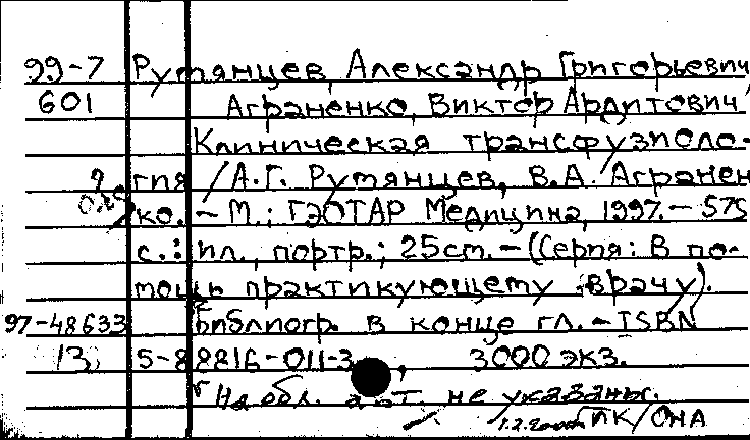 99-7 Румянцев, Александр Григорьевич,
601 Аграненко, Виктор Ардитович
Клиническая трансфузиоло-
гия / А.Г. Румянцев, В.А. Агранен
ко. – М.: ГЭОТАР Медицина, 1997. – 575
с.: ил., портр.; 25 см. – (Серия: В по-
мощь практикующему врачу).
97-48633 Библиогр. в конце гл. – ISBN
13 5-88816-011-3, 3000 экз.
На обл. авт. не указаны.
ПК/ОНА